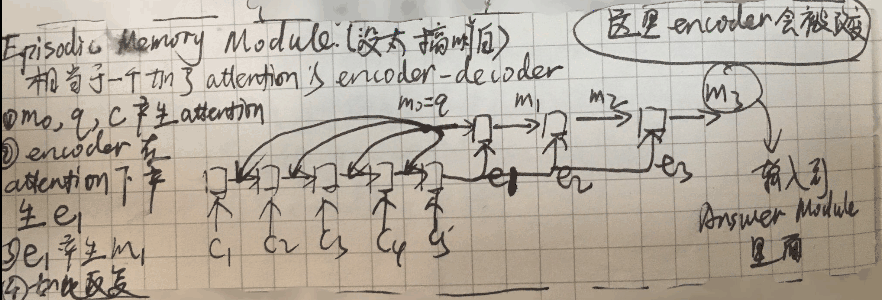 Episodic Memory Module:(没太搞明白)
相当于一个加了attention的encoder-decoder
这里encoder会被改变
①m₀, q, c产生attention
②encoder在
attention下产
生e₁
③e₁产生m₁
④如此反复
m₀=q
m₁
m₂
m₃
e₁
e₂
e₃
C₁
C₂
C₃
C₄
C₅
输入到
Answer Module
里面